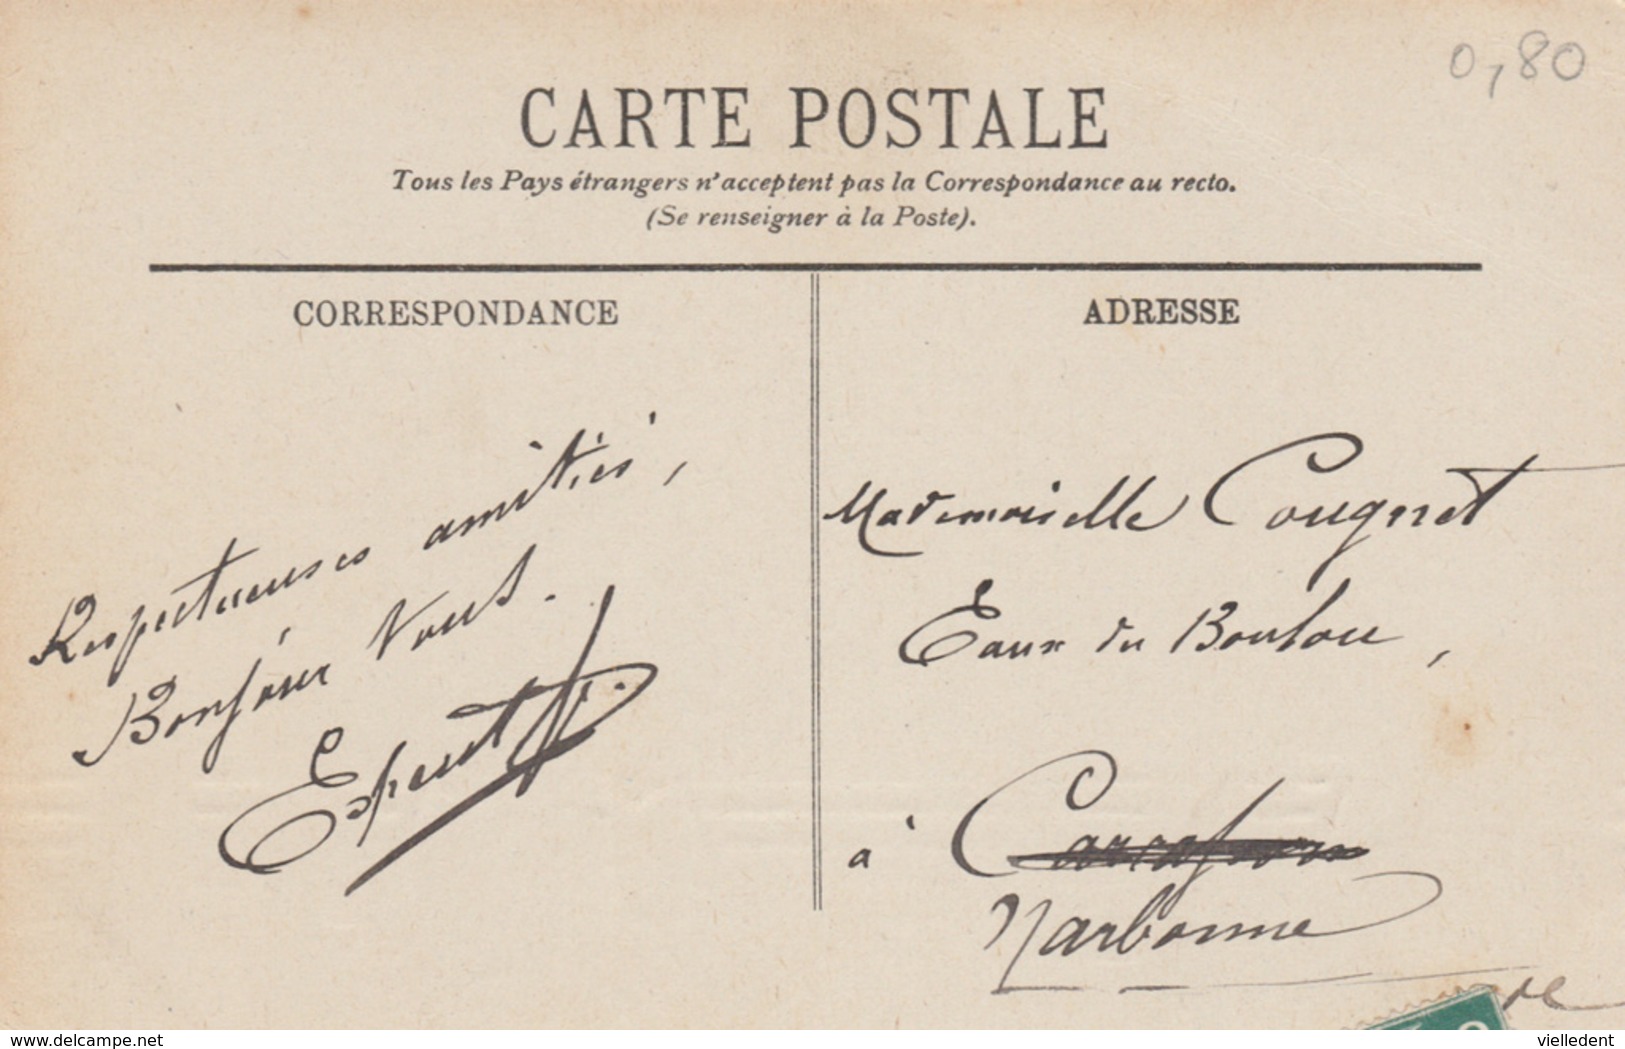 0,80
CARTE POSTALE
Tous les Pays étrangers n'acceptent pas la Correspondance au recto.
(Se renseigner à la Poste).
CORRESPONDANCE
Respectueuses amitiés,
Bonjour Vous.
ADRESSE
Mademoiselle Cougnet
Eaux du Boulou,
à Carcassonne
Narbonne
delcampe.net
vielledent